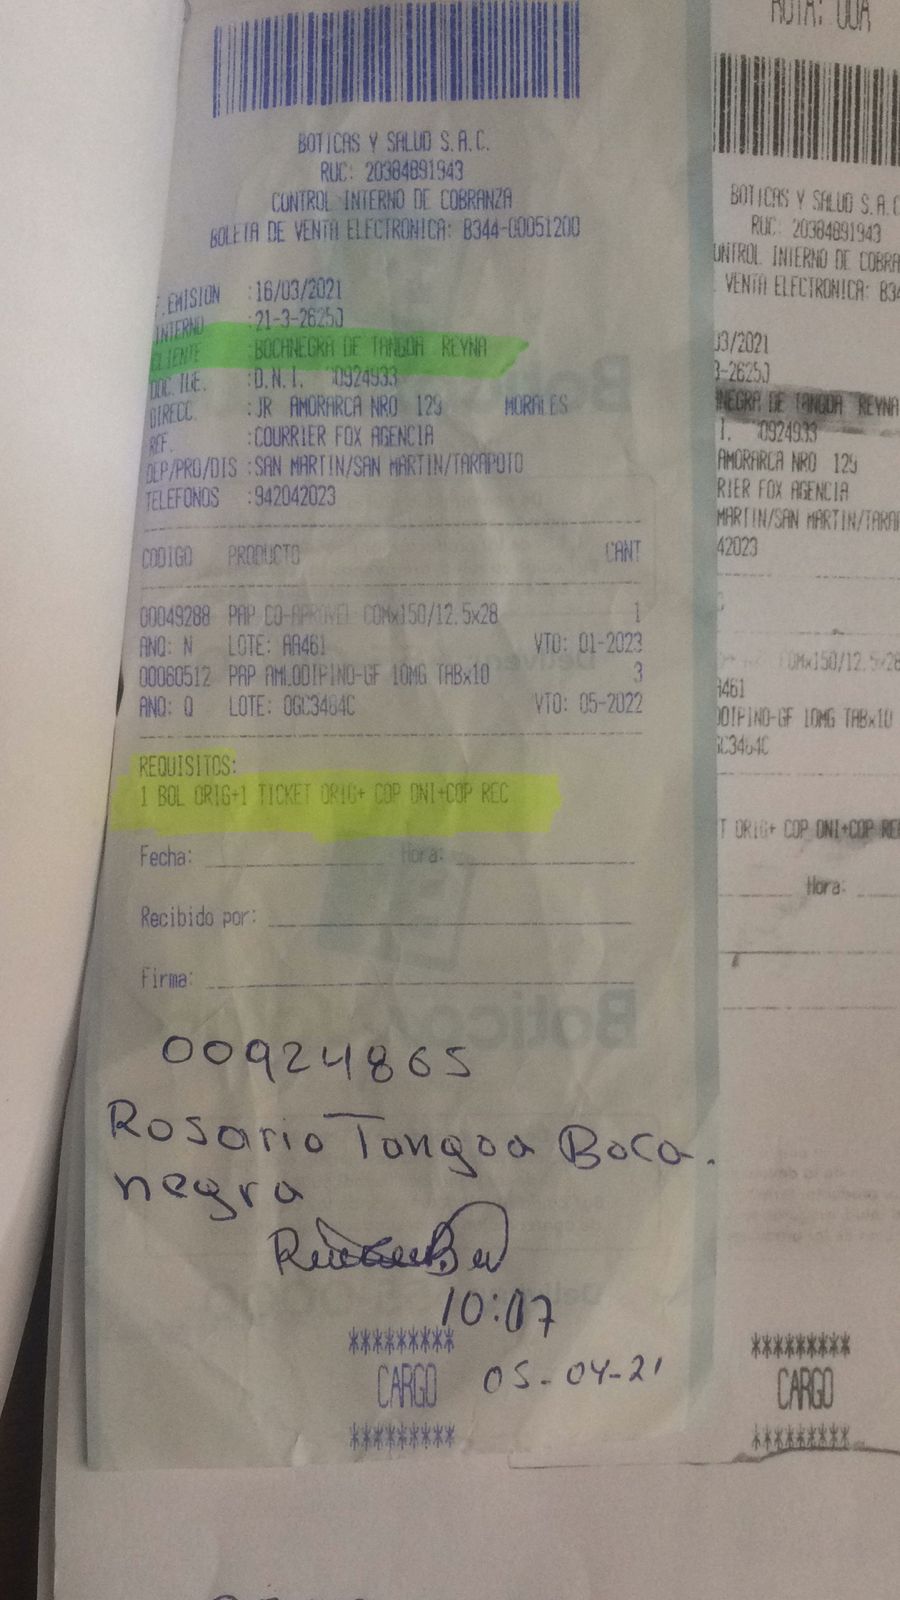 BOTICAS Y SALUD S.A.C.
RUC: 20384891943
CONTROL INTERNO DE COBRANZA
BOLETA DE VENTA ELECTRONICA: B344-00051200
F.EMISION :16/03/2021
INTERNO :21-3-26250
CLIENTE :BOCANEGRA DE TANGOA REYNA
DOC. IDE. :D.N.I. 00924933
DIRECC. :JR AMORARCA NRO 129 MORALES
REF. :COURRIER FOX AGENCIA
DEP/PRO/DIS :SAN MARTIN/SAN MARTIN/TARAPOTO
TELEFONOS :942042023
CODIGO PRODUCTO CANT
00049288 PAP CO-APROVEL COMx150/12.5x28 1
ANQ: N LOTE: AA461 VTO: 01-2023
00060512 PAP AMLODIPINO-GF 10MG TABx10 3
ANQ: Q LOTE: OGC3464C VTO: 05-2022
REQUISITOS:
1 BOL ORIG+1 TICKET ORIG+ COP DNI+COP REC
Fecha: Hora:
Recibido por:
Firma:
00924865
Rosario Tangoa Boca.
negra
10:07
*********
CARGO 05-04-21
*********
RUTA: 00A
BOTICAS Y SALUD S.A.C
RUC: 20384891943
ONTROL INTERNO DE COBRA
VENTA ELECTRONICA: B34
03/2021
3-26250
NEGRA DE TANGOA REYNA
I. 00924933
AMORARCA NRO 129
RIER FOX AGENCIA
MARTIN/SAN MARTIN/TARA
42023
OMx150/12.5x28
A461
ODIPINO-GF 10MG TABx10
GC3464C
T ORIG+ COP DNI+COP RE
Hora:
*********
CARGO
*********